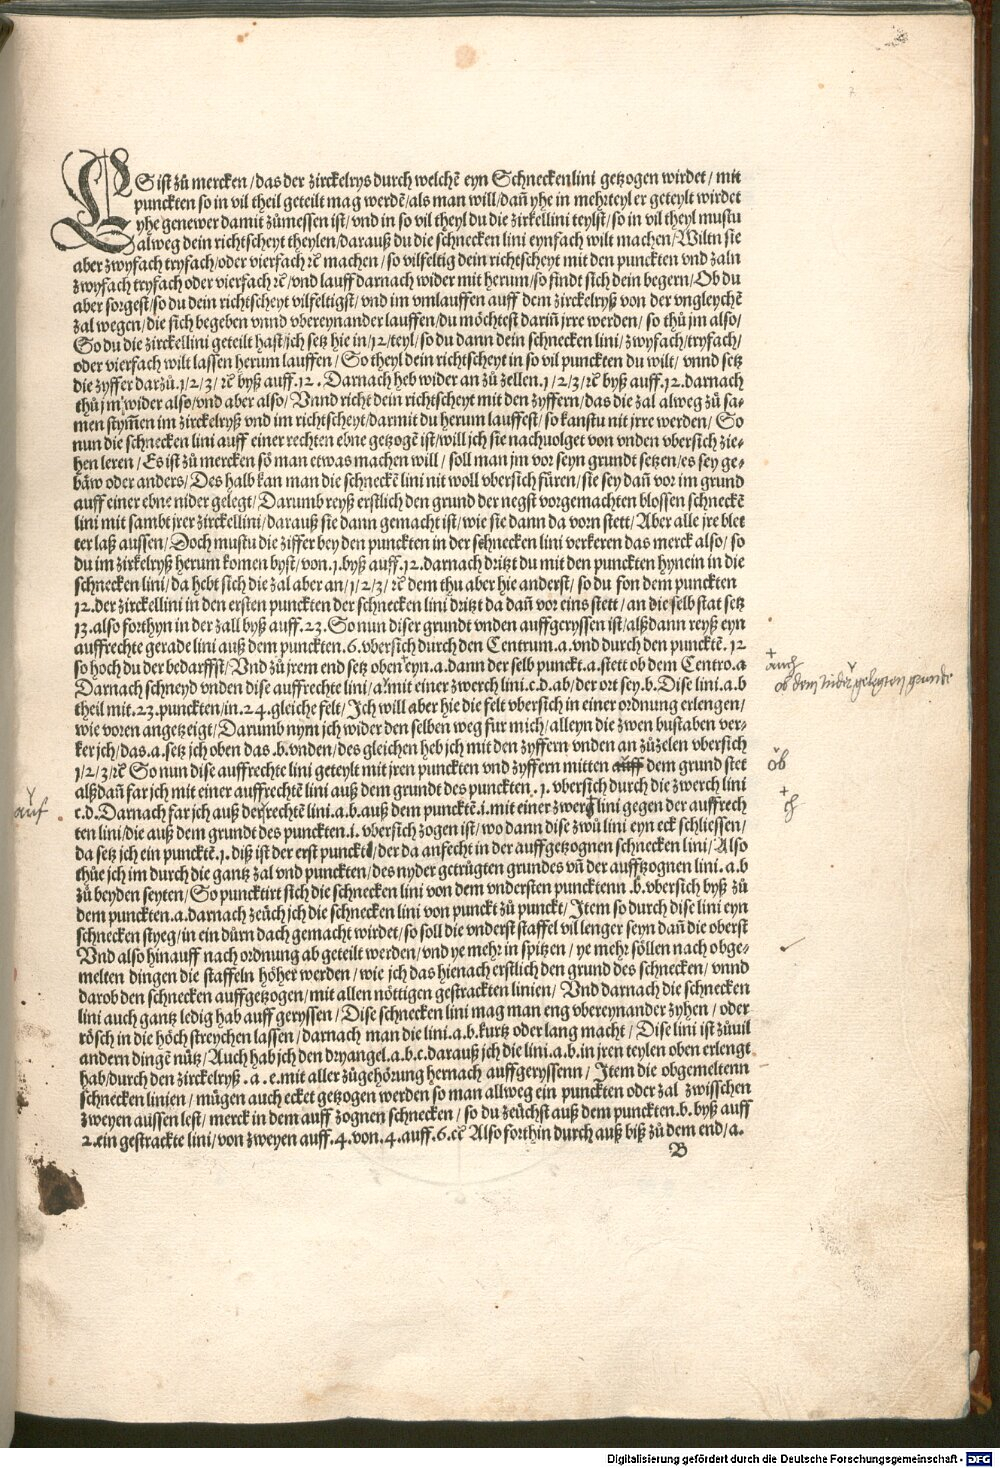 ES ist zů mercken / das der zirckelrys durch welchē eyn Schneckenlini getzogen wirdet / mit
punckten so in vil theil geteilt mag werdē / als man will / dañ yhe in mehr teyl er geteylt wirdet
yhe genewer damit zůmessen ist / vnd in so vil theyl du die zirkellini teylst / so in vil theyl mustu
alweg dein richtscheyt theylen / darauß du die schnecken lini eynfach wilt machen / Wiltu sie
aber zwyfach tryfach / oder vierfach ꝛc̄ machen / so vilfeltig dein richtscheyt mit den punckten vnd zaln
zwyfach tryfach oder vierfach ꝛc̄ / vnd lauff darnach wider mit herum / so findt sich dein begern / Ob du
aber sorgest / so du dein richtscheyt vilfeltigst / vnd im vmlauffen auff dem zirckelryß von der vngleychē
zal wegen / die sich begeben vnnd vbereynander lauffen / du möchtest dariñ jrre werden / so thů jm also /
So du die zirckellini geteilt hast / ich setz hie in / 12 / teyl / so du dann dein schnecken lini / zwyfach / tryfach /
oder vierfach wilt lassen herum lauffen / So theyl dein richtscheyt in so vil punckten du wilt / vnnd setz
die zyffer darzů . 1 / 2 / 3 / ꝛc̄ byß auff . 12 . Darnach heb wider an zů zellen . 1 / 2 / 3 / ꝛc̄ byß auff . 12 . darnach
thů jm wider also / vnd aber also / Vnnd richt dein richtscheyt mit den zyffern / das die zal alweg zů sa-
men stym̄en im zirckelryß vnd im richtscheyt / darmit du herum lauffest / so kanstu nit jrre werden / So
nun die schnecken lini auff einer rechten ebne getzogē ist / will ich sie nachuolget von vnden vbersich zie-
hen leren / Es ist zů mercken so man etwas machen will / soll man jm vor seyn grundt setzen / es sey ge-
bäw oder anders / Des halb kan man die schneckē lini nit woll vbersich füren / sie sey dañ vor im grund
auff einer ebne nider gelegt / Darumb reyß erstlich den grund der negst vorgemachten blossen schneckē
lini mit sambt jrer zirckellini / darauß sie dann gemacht ist / wie sie dann da vorn stett / Aber alle jre blet
ter laß aussen / Doch mustu die ziffer bey den punckten in der schnecken lini verkeren das merck also / so
du im zirkelryß herum komen byst / von . 1 . byß auff . 12 . darnach dritzt du mit den punckten hynein in die
schnecken lini / da hebt sich die zal aber an / 1 / 2 / 3 / ꝛc̄ dem thu aber hie anderst / so du fon dem punckten
12 . der zirckellini in den ersten punckten der schnecken lini dritzt da dañ vor eins stett / an die selb stat setz
13 . also forthyn in der zall byß auff . 23 . So nun diser grundt vnden auffgeryssen ist / alßdann reyß eyn
auffrechte gerade lini auß dem punckten . 6 . vbersich durch den Centrum . a . vnd durch den punckte . 12
so hoch du der bedarffst / Vnd zů jrem end setz oben eyn . a . dann der selb punckt . a . stett ob dem Centro . a
auch
Darnach schneyd vnden dise auffrechte lini / a mit einer zwerch lini . c . d . ab / der ort sey . b . Dise lini . a . b
ob dem nider gelegten grunde
theil mit . 23 . punckten / in . 24 . gleiche felt / Ich will aber hie die felt vbersich in einer ordnung erlengen /
wie voren angetzeigt / Darumb nym ich wider den selben weg für mich / alleyn die zwen bustaben ver-
ker ich / das . a . setz ich oben das . b . vnden / des gleichen heb ich mit den zyffern vnden an zůzelen vbersich
1 / 2 / 3 / ꝛc̄ So nun dise auffrechte lini geteylt mit jren punckten vnd zyffern mitten auff dem grund stet
ob
alßdañ far ich mit einer auffrechtē lini auß dem grundt des punckten . 1 . vbersich durch die zwerch lini
c . d . Darnach far ich auß der rechtē lini . a . b . auß dem punckte . i . mit einer zwerg lini gegen der auffrech
auf
ch
ten lini / die auß dem grundt des punckten . i . vbersich zogen ist / wo dann dise zwů lini eyn eck schliessen /
da setz ich ein punckte . 1 . diß ist der erst punckt / der da anfecht in der auffgetzognen schnecken lini / Also
thůe ich im durch die gantz zal vnd punckten / des nyder getrügten grundes vñ der aufftzognen lini . a . b
zů beyden seyten / So punctirt sich die schnecken lini von dem vndersten puncktenn . b . vbersich byß zů
dem punckten . a . darnach zeüch ich die schnecken lini von punckt zů punckt / Item so durch dise lini eyn
schnecken styeg / in ein dürn dach gemacht wirdet / so soll die vnderst staffel vil lenger seyn dañ die oberst
Vnd also hinauff nach ordnung ab geteilt werden / vnd ye mehr in spitzen / ye mehr söllen nach obge-
melten dingen die staffeln höher werden / wie ich das hienach erstlich den grund des schnecken / vnnd
darob den schnecken auffgetzogen / mit allen nöttigen gestrackten linien / Vnd darnach die schnecken
lini auch gantz ledig hab auff geryssen / Dise schnecken lini mag man eng vbereynander zyhen / oder
rösch in die höch streychen lassen / darnach man die lini . a . b . kurtz oder lang macht / Dise lini ist zůuil
andern dingē nütz / Auch hab ich den dryangel . a . b . c . darauß ich die lini . a . b . in jren teylen oben erlengt
hab / durch den zirckelryß . a . e . mit aller zůgehörung hernach auffgeryssenn / Item die obgemeltenn
schnecken linien / mügen auch ecket getzogen werden so man allweg ein punckten oder zal zwisschen
zweyen aussen lest / merck in dem auff zognen schnecken / so du zeüchst auß dem punckten . b . byß auff
2 . ein gestrackte lini / von zweyen auff . 4 . von . 4 . auff . 6 . ꝛc̄ Also forthin durch auß biß zů dem end / a .
B
Digitalisierung gefördert durch die Deutsche Forschungsgemeinschaft - DFG